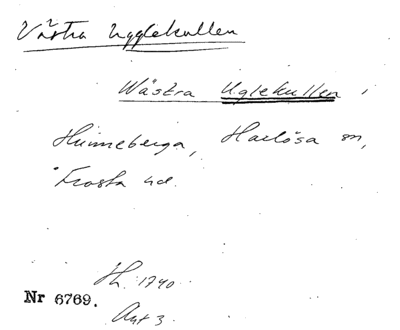 Västra Ugglekullen
Wästra Uglekullen i
Hunneberga, Harlösa sn,
Frosta hd.
Hl. 1740
Nr 6769.
Akt 3